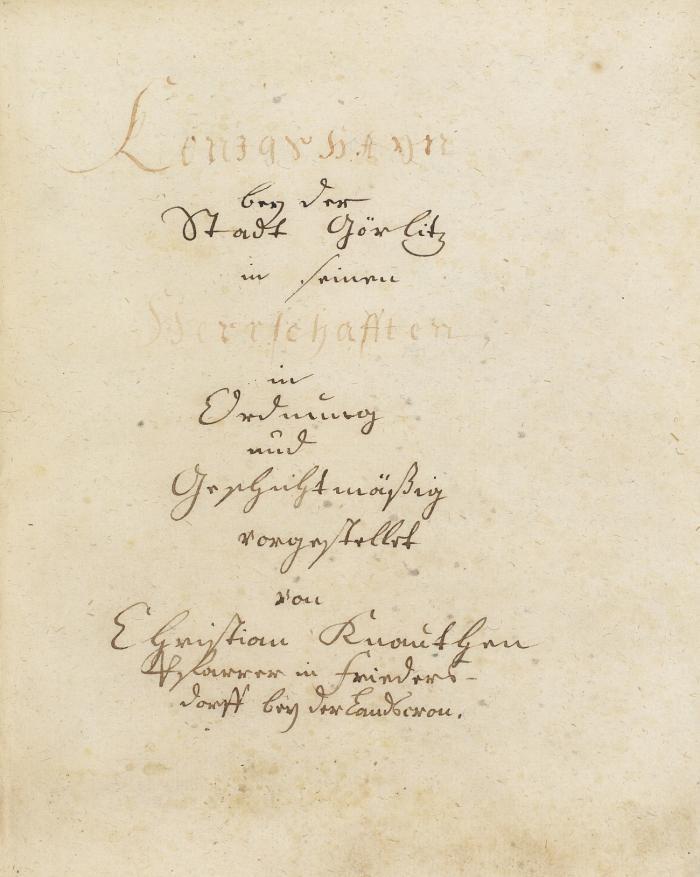 Königshayn
bey der
Stadt Görlitz
in seinen
Herrschafften,
in
Ordnung
und
Geschichtmäßig
vorgestellet
von
Christian Knauthen
Pfarrer in Frieders-
dorff bey der Landscron.